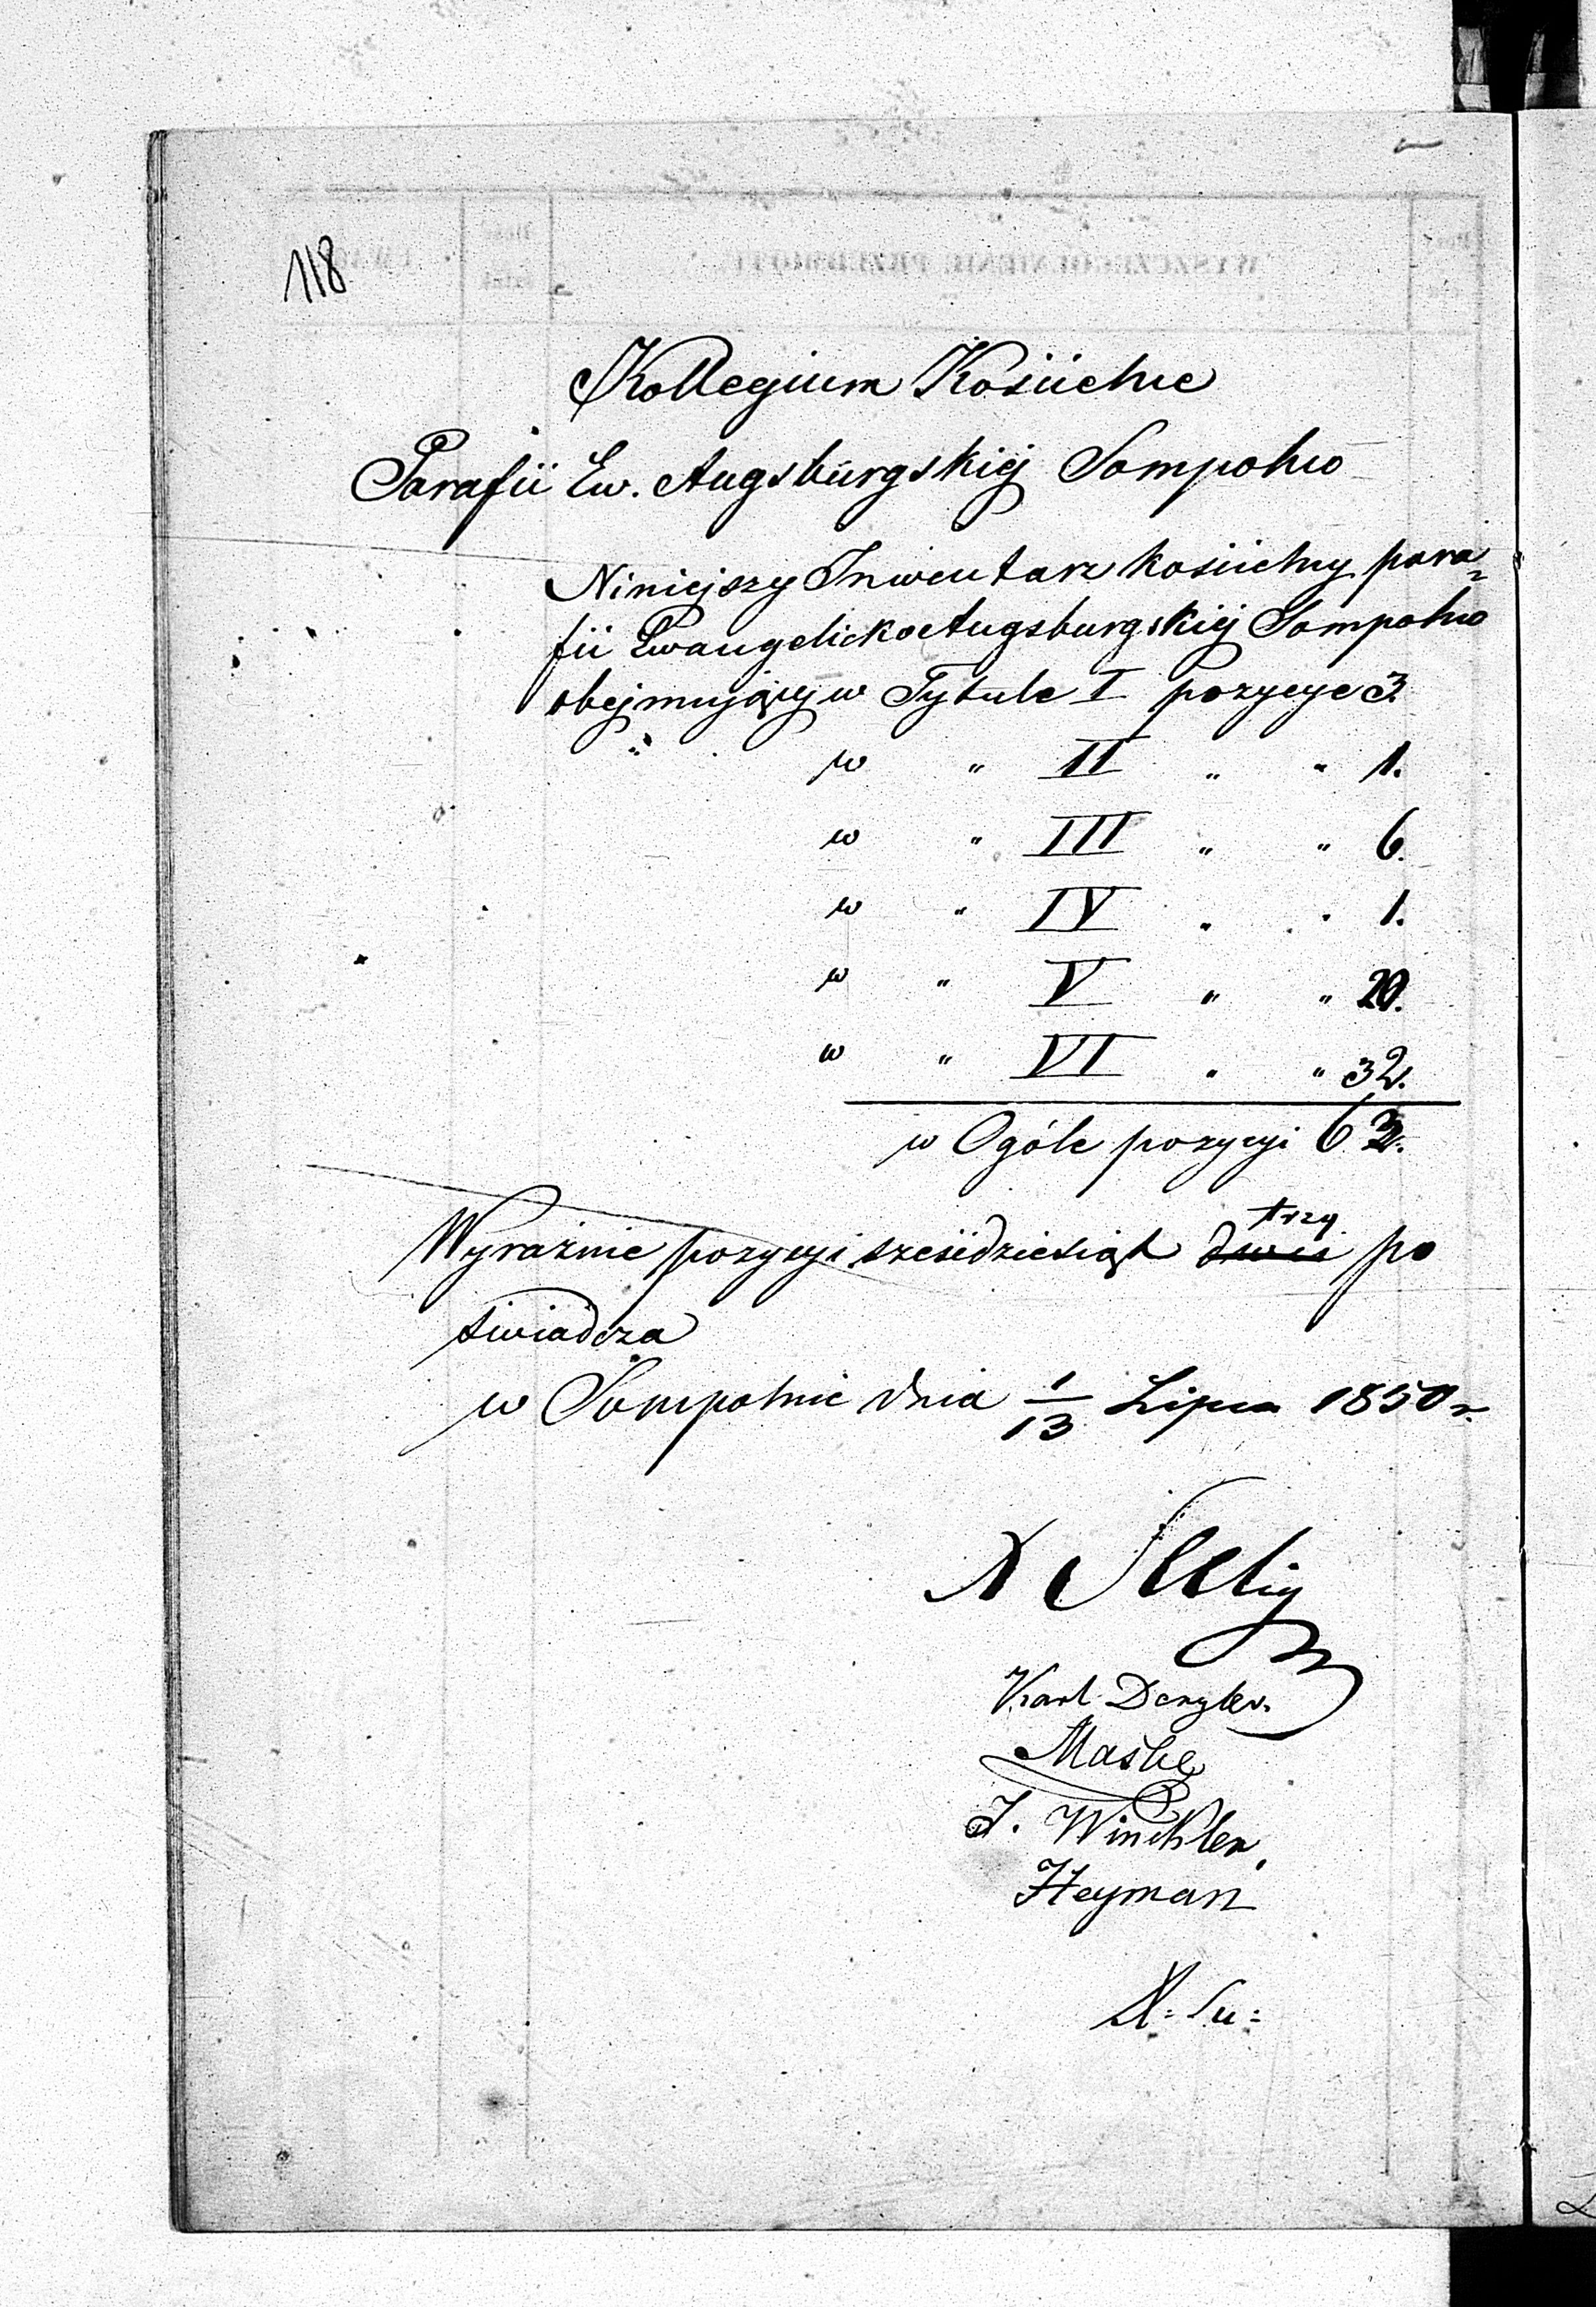 118
Kollegium Kościelne
Parafii Ew. Augsburgskiéj Sompolno
Niniejszy Inwentarz kościelny para=
fii Ewangelicko Augsburgskiéj Sompolno
obejmujący w Tytule I pozycye 3.
" w " II " " 1.
w " III " " 6.
w " IV " " 1.
w " V " " 20.
w " VI " " 32.
w Ogóle pozycyi 63.
trzy
Wyraźnie pozycyi sześćdziesiąt dwie po
świadcza
w Sompolnie dnia 1/13 Lipca 1850 r.
Karl
J. Winckler,
Heyman